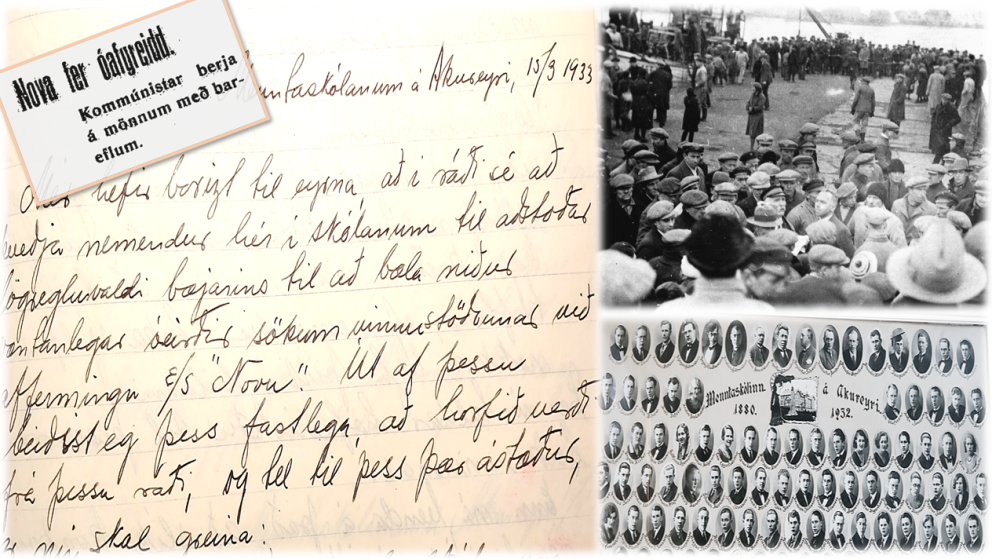 Nova fer óafgreidd.
Kommúnistar berja
á mönnum með bar-
eflum.
nntaskólanum á Akureyri, 15/3 1933
Mér hefir borizt til eyrna, að í ráði sé að
kveðja nemendur hér í skólanum til aðstoðar
lögregluvaldi bæjarins til að bæla niður
væntanlegar óeirðir sökum vinnustöðvunar við
affermingu E/S "Novu". Út af þessu
beiðist eg þess fastlega, að horfið verði
frá þessu ráði, og tel til þess þær ástæður,
skal greina:
Menntaskólinn á Akureyri
1880. 1932.